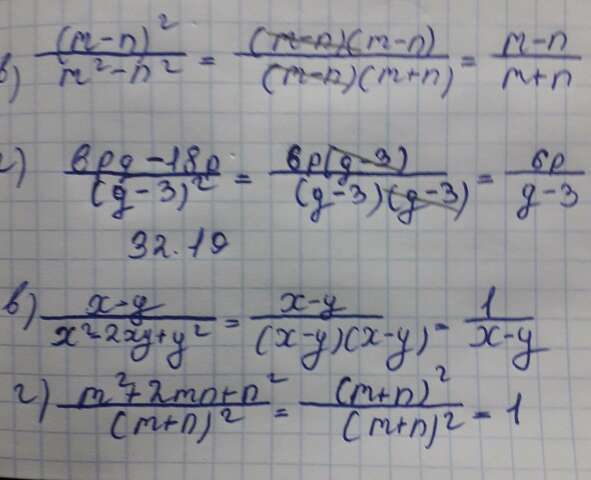 в) (m-n)² / m²-n² = (m-n)(m-n) / (m-n)(m+n) = m-n / m+n
г) 6pq-18p / (q-3)² = 6p(q-3) / (q-3)(q-3) = 6p / q-3
32.19
в) x-y / x²-2xy+y² = x-y / (x-y)(x-y) = 1 / x-y
г) m²+2mn+n² / (m+n)² = (m+n)² / (m+n)² = 1